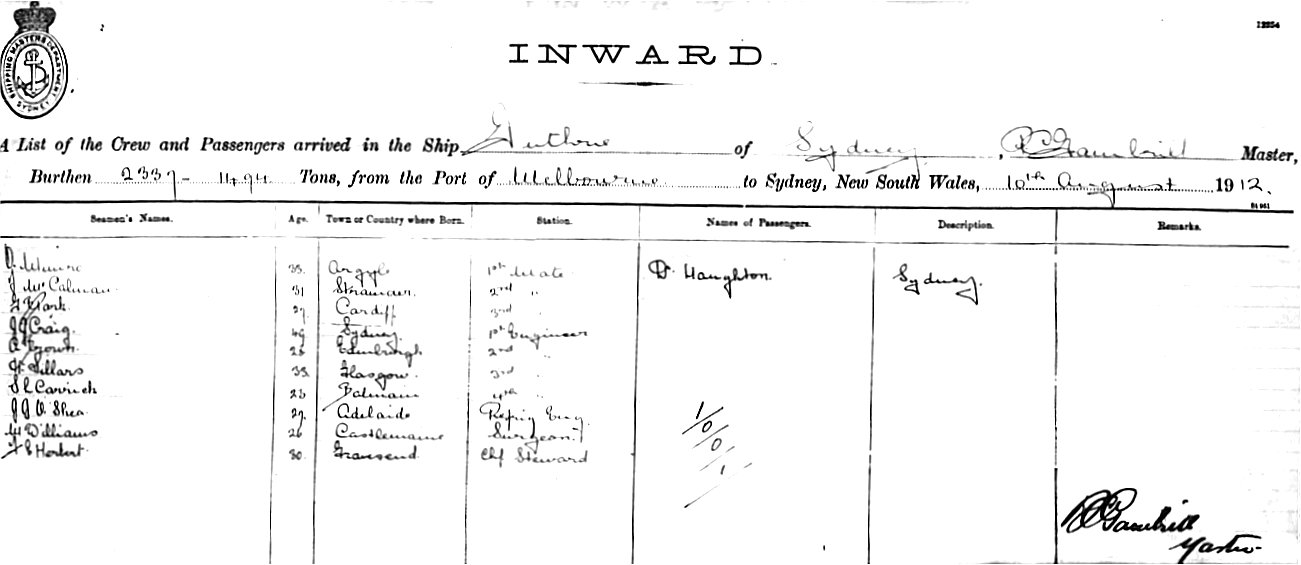 SHIPPING MASTERS DEPARTMENT SYDNEY
12254
INWARD
A List of the Crew and Passengers arrived in the Ship Guthrie of Sydney, R C Gambrill Master,
Burthen 2337 - 1494 Tons, from the Port of Melbourne to Sydney, New South Wales, 10th August 1912.
Seamen's Names. Age. Town or Country where Born. Station. Names of Passengers. Description. Remarks.
D. Munro 33. Argyle 1st Mate Dr Haughton. Sydney.
J McCalman 31 Stranraer. 2nd "
Park 27 Cardiff 3rd "
J J Craig. 49 Sydney. 1st Engineer
Brown. 25 Edinburgh 2nd "
H. Sillars 33. Glasgow. 3rd "
S L 23 Balmain 4th "
J J O'Shea. 29. Adelaide Refrig Eng.
W Williams 26 Castlemaine Surgeon
F S Herbert. 30. Gravesend Chf Steward
1/0/0/1
R C Gambrill
Master